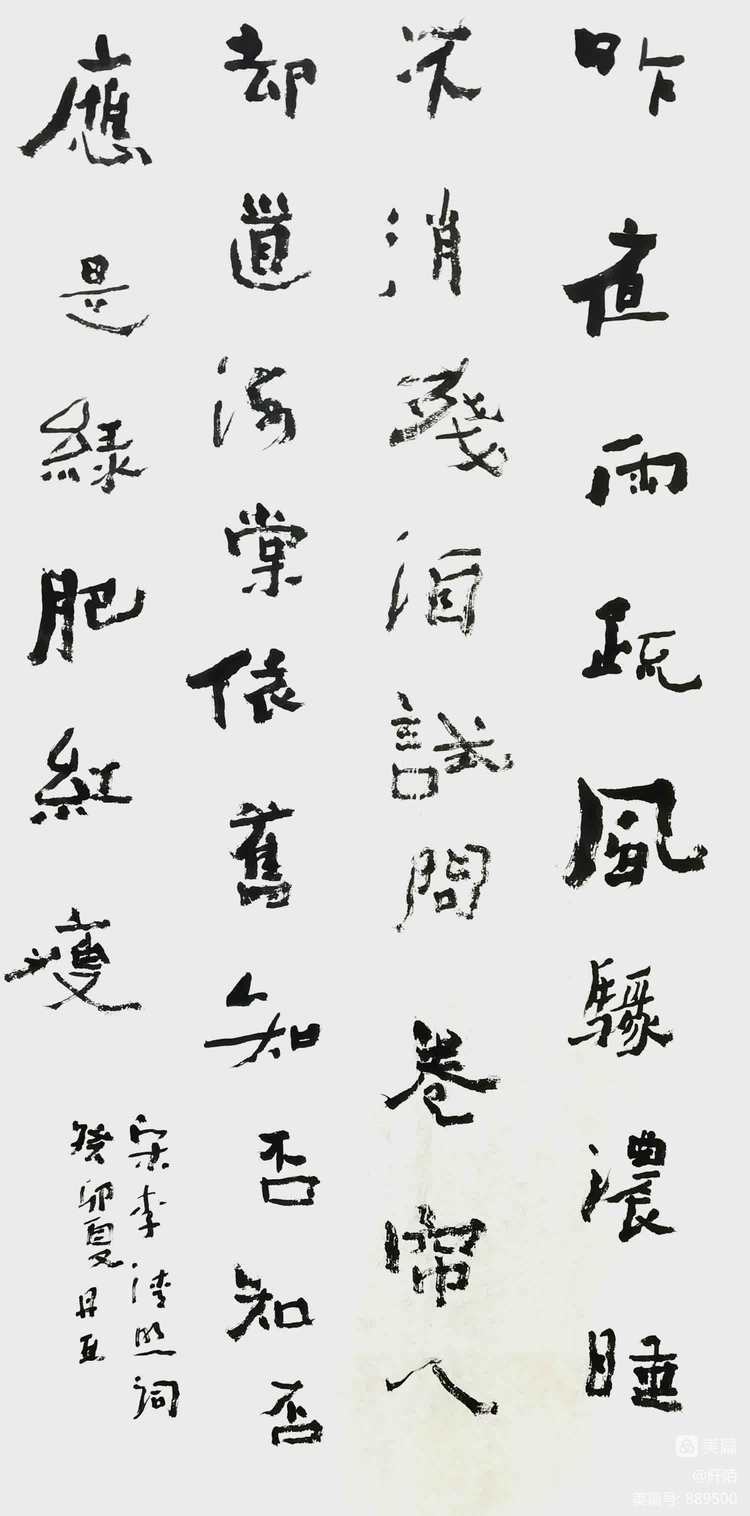 昨夜雨疏風驟濃睡
不消殘酒試問卷帘人
却道海棠依舊知否知否
應是綠肥紅瘦
宋李清照詞
癸卯夏
美篇
@阡陌
美篇号: 889500